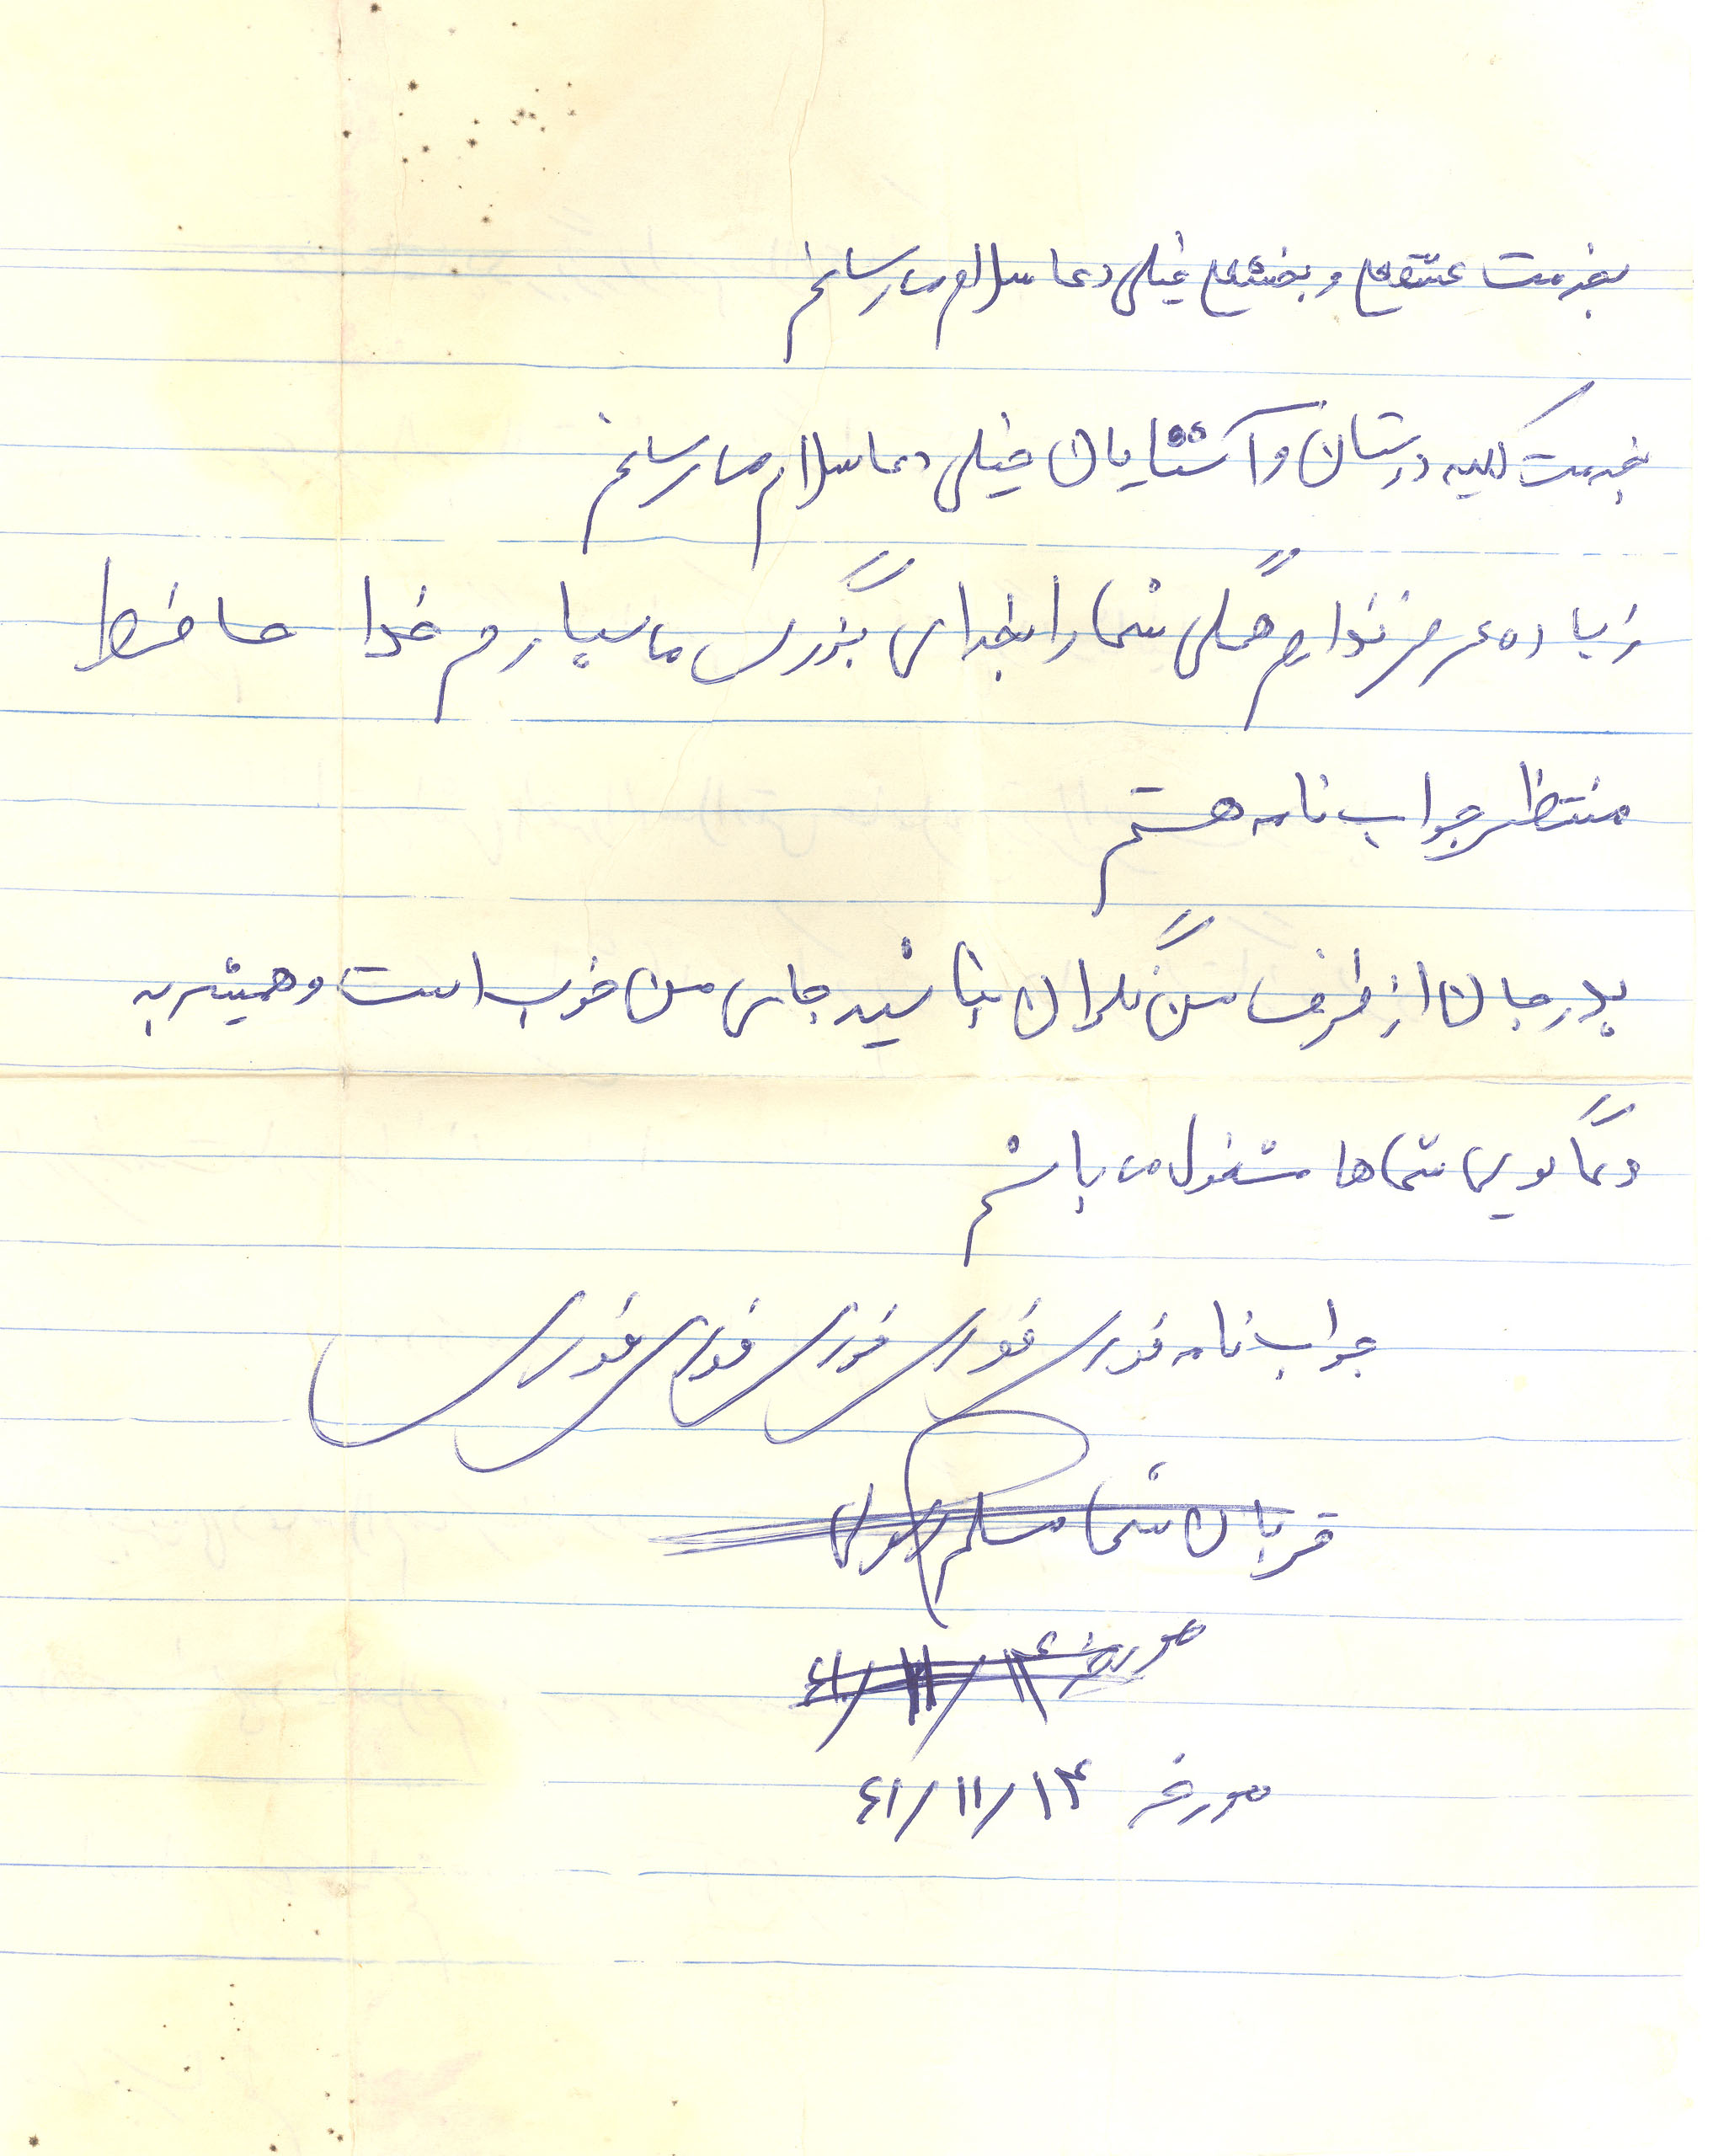 بخدمت عشقعلی و بخشعلی خیلی دعا سلام میرسانم
بخدمت کلیه دوستان و آشنایان خیلی دعا سلام میرسانم
زیاده عرض ندارم همگی شما را بخدای بزرگ میسپارم خدا حافظ
منتظر جواب نامه هستم
پدر جان از طرف من نگران نباشید جای من خوب است و همیشه به
دعاگویی شماها مشغول می باشم
جواب نامه فوری فوری فوری فوری فوری
قربان شما مسلم
مورخه ۶۱/۱۱/۱۴
مورخه ۶۱/۱۱/۱۴